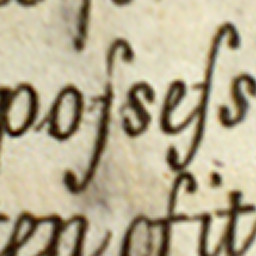 poſseſs
en of it